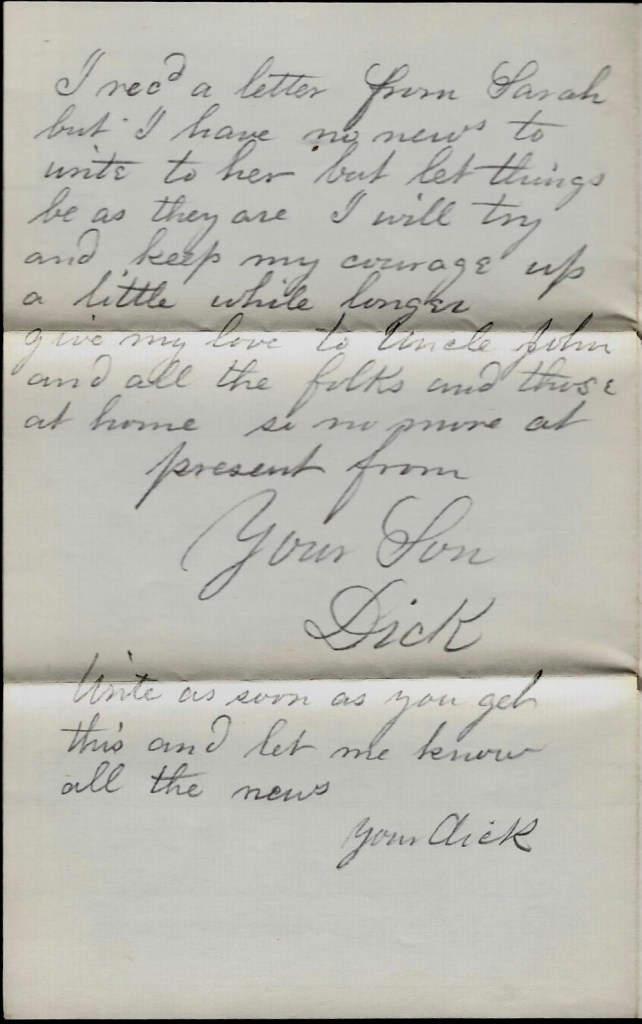 I rec'd a letter from Sarah
but I have no news to
write to her but let things
be as they are I will try
and keep my courage up
a little while longer
give my love to Uncle John
and all the folks and those
at home so no more at
present from
Your Son
Dick
Write as soon as you get
this and let me know
all the news
your dick